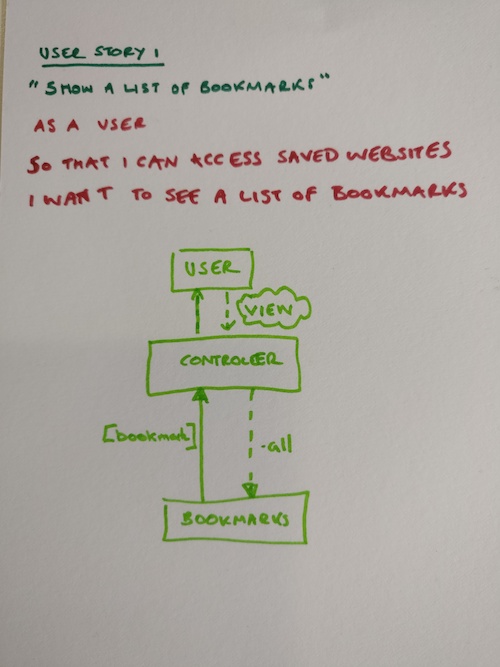 USER STORY 1
"SHOW A LIST OF BOOKMARKS"
AS A USER
SO THAT I CAN ACCESS SAVED WEBSITES
I WANT TO SEE A LIST OF BOOKMARKS
USER
VIEW
CONTROLLER
[bookmark]
.all
BOOKMARKS